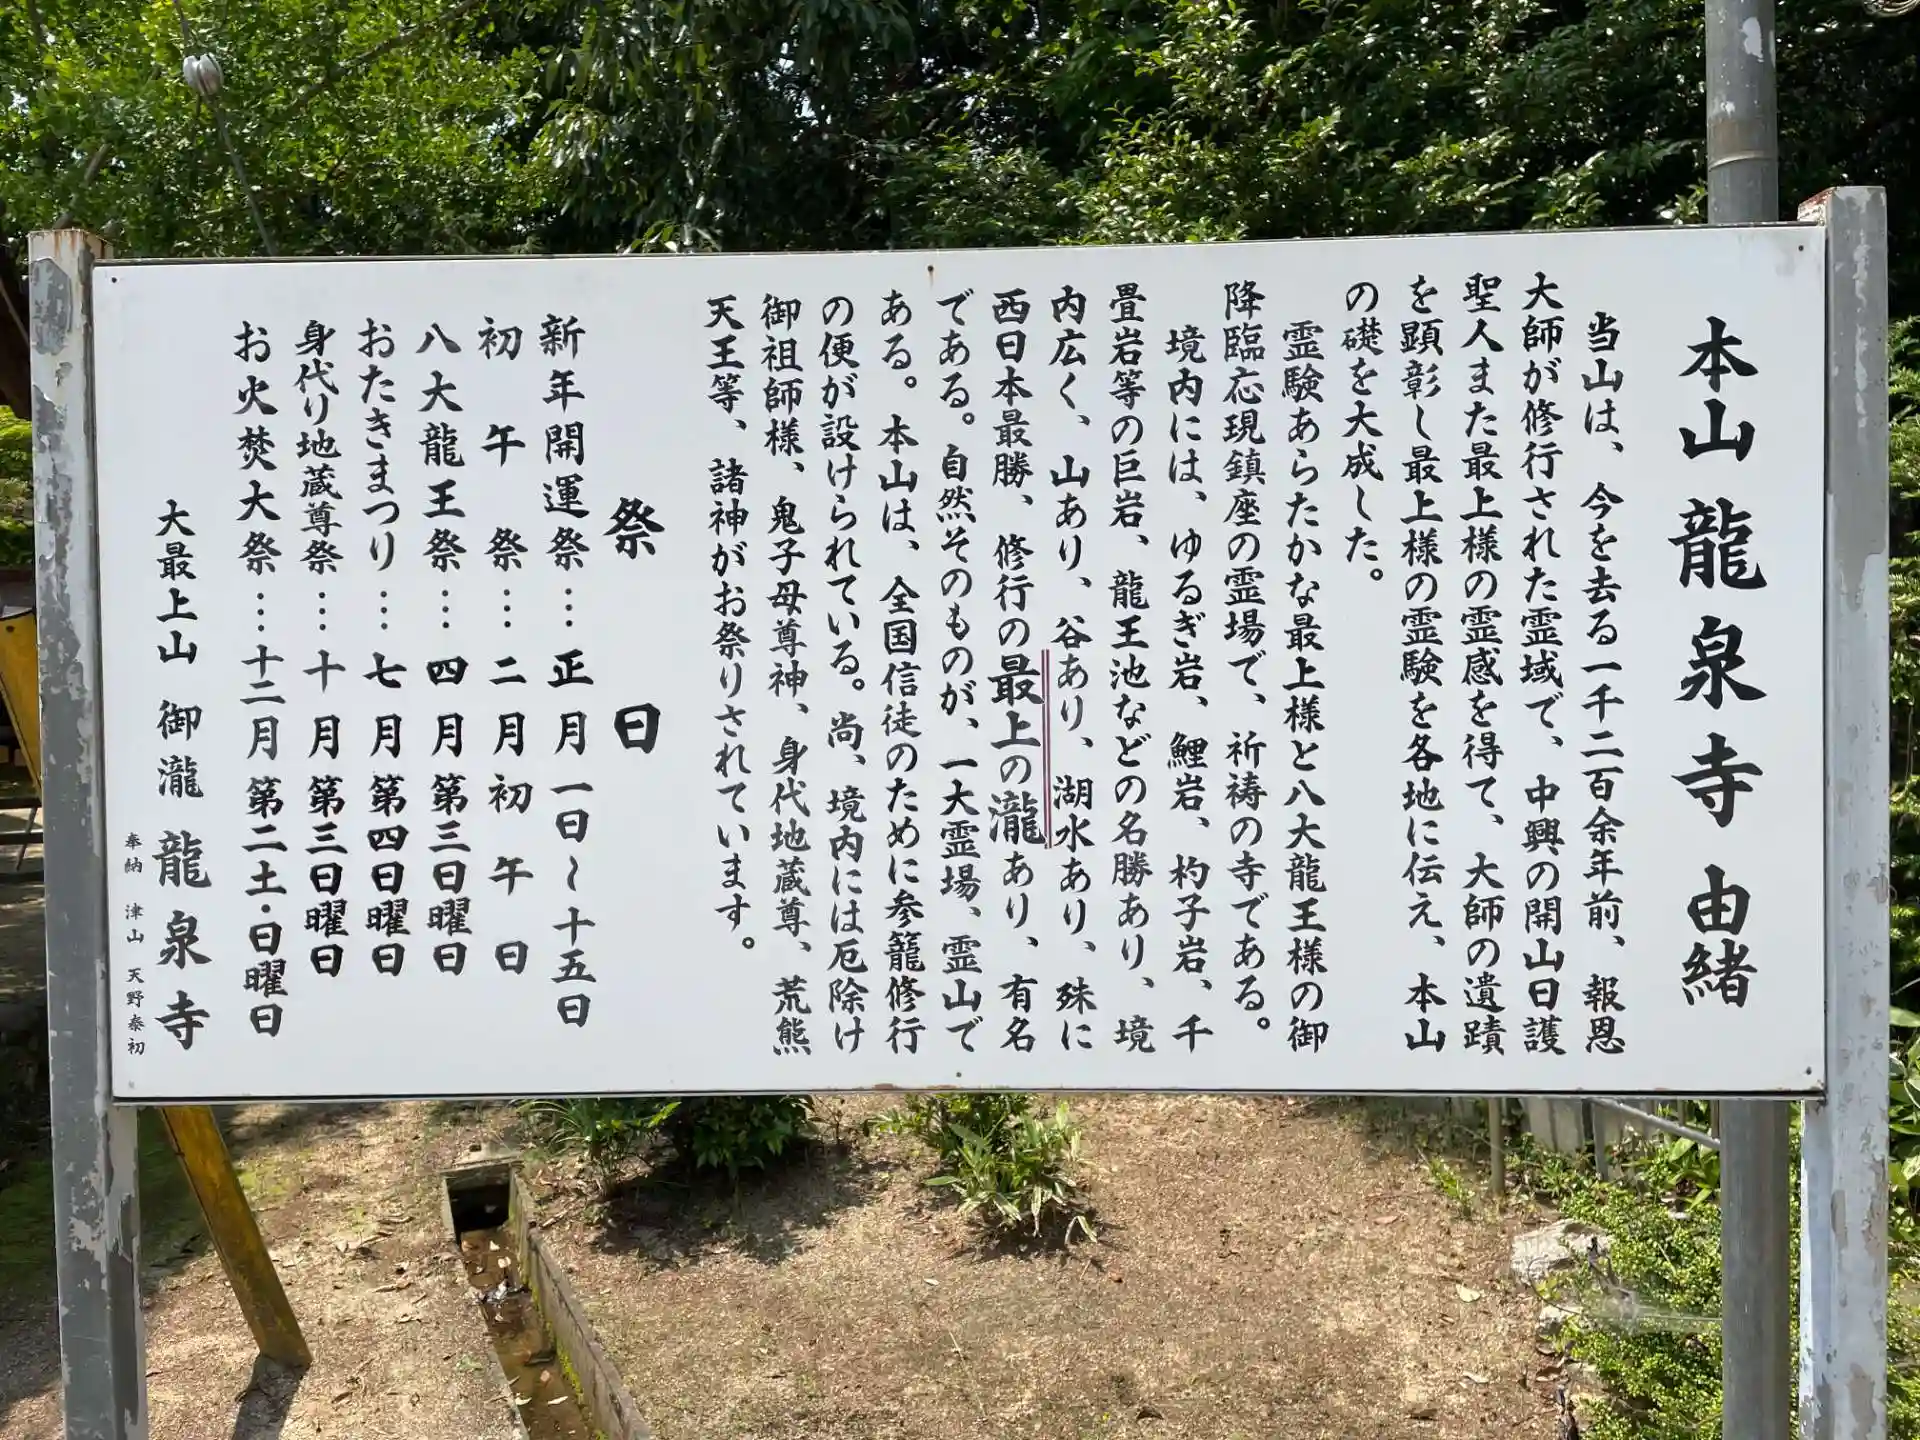 本山龍泉寺由緒
当山は、今を去る一千二百余年前、報恩
大師が修行された霊域で、中興の開山日護
聖人また最上様の霊感を得て、大師の遺蹟
を顕彰し最上様の霊験を各地に伝え、本山
の礎を大成した。
霊験あらたかな最上様と八大龍王様の御
降臨応現鎮座の霊場で、祈祷の寺である。
境内には、ゆるぎ岩、鯉岩、杓子岩、千
畳岩等の巨岩、龍王池などの名勝あり、境
内広く、山あり、谷あり、湖水あり、殊に
西日本最勝、修行の最上の瀧あり、有名
である。自然そのものが、一大霊場、霊山で
ある。本山は、全国信徒のために参籠修行
の便が設けられている。尚、境内には厄除け
御祖師様、鬼子母尊神、身代地蔵尊、荒熊
天王等、諸神がお祭りされています。
祭日
新年開運祭…正月一日〜十五日
初午祭…二月初午日
八大龍王祭…四月第三日曜日
おたきまつり…七月第四日曜日
身代り地蔵尊祭…十月第三日曜日
お火焚大祭…十二月第二土・日曜日
大最上山御瀧龍泉寺
奉納 津山 天野泰初